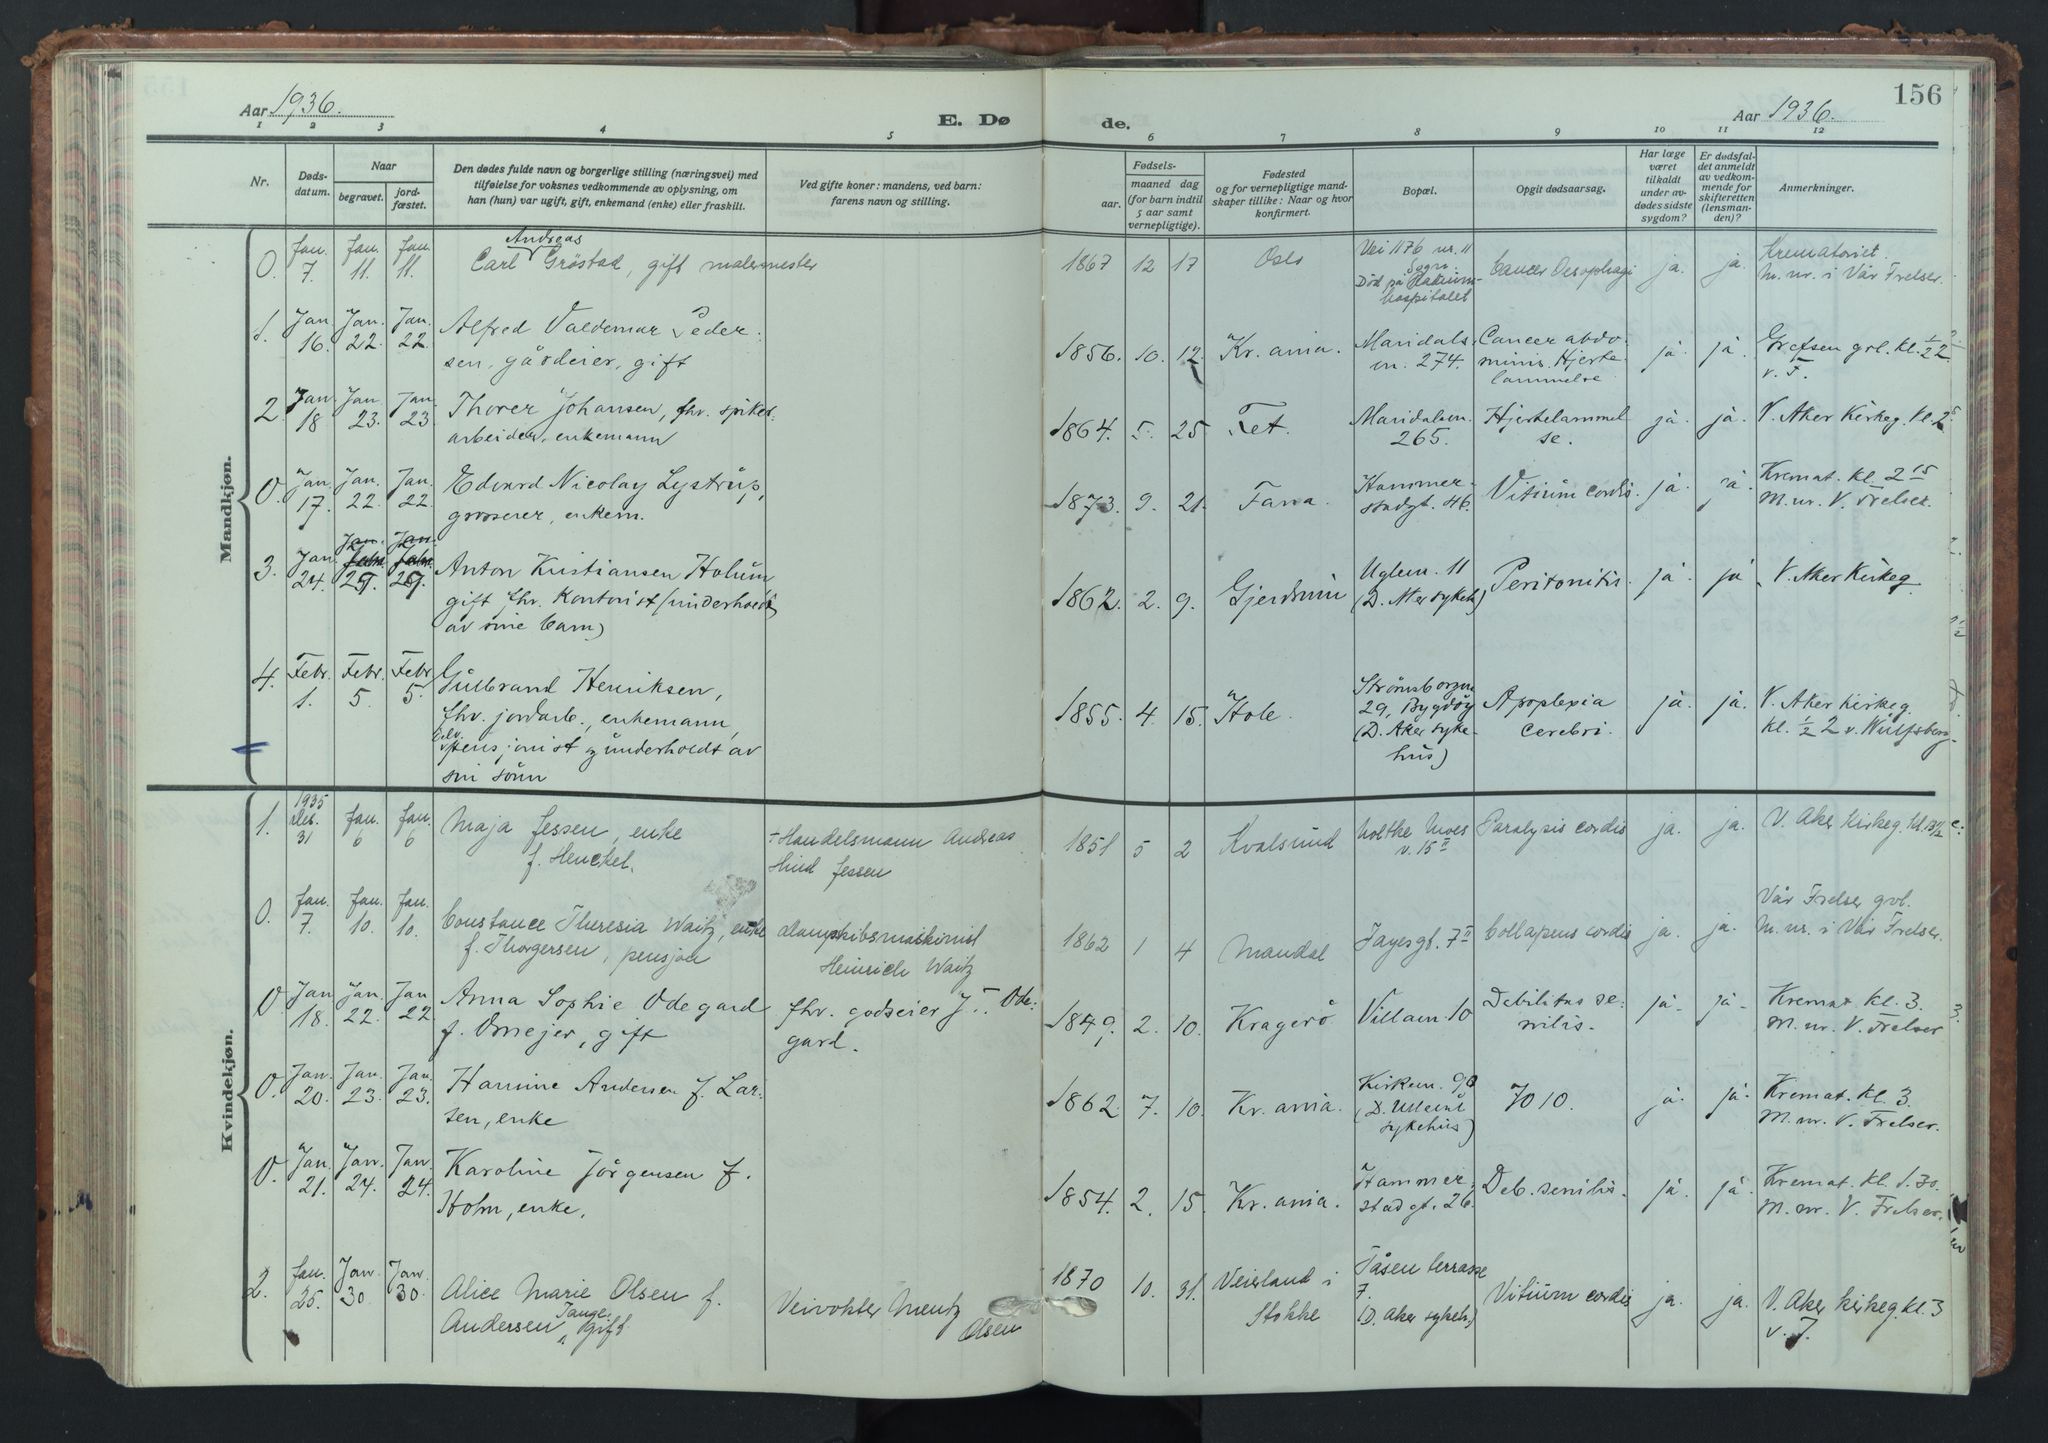 156
Aar 1936.
E. Dø
de.
Aar 1936.
1 2 3 4 5 6 7 8 9 10 11 12
Nr.
Døds-
datum.
Naar
begravet.
jord-
fæstet.
Den dødes fulde navn og borgerlige stilling (næringsvei) med
tilføielse for voksnes vedkommende av oplysning, om
han (hun) var ugift, gift, enkemand (enke) eller fraskilt.
Ved gifte koner: mandens, ved barn:
farens navn og stilling.
Fødsels-
aar.
maaned
dag
(for barn indtil
5 aar samt
vernepligtige).
Fødested
og for vernepligtige mand-
skaper tillike: Naar og hvor
konfirmert.
Bopæl.
Opgit dødsaarsag.
Har læge
været
tilkaldt
under av-
dødes sidste
sygdom?
Er dødsfal-
det anmeldt
av vedkom-
mende for
skifteretten
(lensman-
den)?
Anmerkninger.
Mandkjøn.
0. Jan. 7. Jan. 11. Jan. 11.
Andreas
Carl Gröstad, gift malermester
1867 12 17 Oslo
Vei 1176 nr. 11
Sogn.
Död på Radium-
hospitalet
Cancer Oesophagi ja. ja.
Krematoriet.
M. nr. i Vår Frelser.
1. Jan. 16. Jan. 22. Jan. 22.
Alfred Valdemar Peder-
sen, gårdeier, gift
1856. 10. 12. Kr.ania.
Maridals-
v. 274.
Cancer abdo-
minis. Hjerte-
lammelse
ja. ja.
Grefsen grl. kl. 1/2 2
v. F.
2. Jan 18 Jan. 23. Jan. 23
Thorer Johansen, fhv. spiker-
arbeider, enkemann
1864. 5. 25. Fet.
Maridalsv.
265.
Hjertelammel
se.
ja. ja.
V. Aker Kirkeg. kl. 2
0. Jan. 17. Jan. 22. Jan. 22.
Edvard Nicolay Lystrup,
grosserer, enkem.
1873. 9. 21. Fana.
Hammer-
stadgt. 46.
Vitium cordis ja. ja.
Kremat. kl. 2 15
M. nr. V. Frelser.
3. Jan 24. Jan. 29. Jan. 29.
Anton Kristiansen Holum
gift fhv. Kontorist (underholdt
av sine barn)
1862. 2. 9. Gjerdrum
Uglev. 11
(D. Aker sykeh)
Peritonitis. ja. ja
V. Aker Kirkeg.
4. Febr. 1. Febr. 5 Febr. 5.
Gulbrand Henriksen,
fhv. jordarb., enkemann,
pensjonist underholdt av
sin sönn
1855. 4. 15. Hole.
Strömsborgv.
29, Bygdöy
(D. Aker syke-
hus)
Apoplexia
cerebri.
ja. ja.
V. Aker Kirkeg.
kl. 1/2 2 v. Wulfsberg
Kvindekjøn.
1. 1935 Des. 31 Jan. 6 Jan. 6
Maja Jessen, enke
f. Henckel.
+ Handelsmann Andreas
Hind Jessen
1851 5 2 Kvalsund
Moltke Moes
v. 15 II
Paralysis cordis ja. ja.
V. Aker Kirkeg. kl. 13 1/2
0. Jan. 7. Jan. 10. Jan. 10.
Constance Theresia Waitz, enke
f. Thorgersen, pensjon
dampskibsmaskinist
Heinrich Waitz
1862 1 4 Mandal
Jayesgt. 7 II
Collapens cordis ja. ja.
Vår Frelser grl.
M. nr. i Vår Frelser.
0 Jan 18. Jan. 22. Jan 22
Anna Sophie Ödegard
f. Omejer, gift
fhv. godseier J. F. Öde-
gard.
1849. 2. 10. Kragerö
Villav. 10
Debilitas se-
nilis.
ja. ja.
Kremat. kl. 3.
M. nr. V. Frelser
0. Jan. 20. Jan. 23. Jan. 23.
Hannine Andersen f. Lar-
sen, enke
1862 7. 10. Kr.ania.
Kirkev. 90
(D. Ullevål
sykehus)
7010. ja. ja.
Kremat. kl. 3.
M. nr. V. Frelser.
0. Jan. 21. Jan. 24. Jan. 24.
Karoline Jörgensen f.
Holm, enke.
1854. 2. 15. Kr.ania.
Hammer-
stadgt. 26.
Deb. senilis. ja. ja.
Kremat. kl. 1.30.
M. nr. V. Frelser.
2. Jan. 25. Jan. 30 Jan. 30
Alice Marie Olsen f.
Andersen Tange. Gift
Veivokter Mentz
Olsen
1870 10. 31. Veierland i
Stokke
Tåsen terrasse
7.
(D. Aker sykeh.)
Vitium cordis ja. ja.
V. Aker kirkeg. kl. 3
v. J.